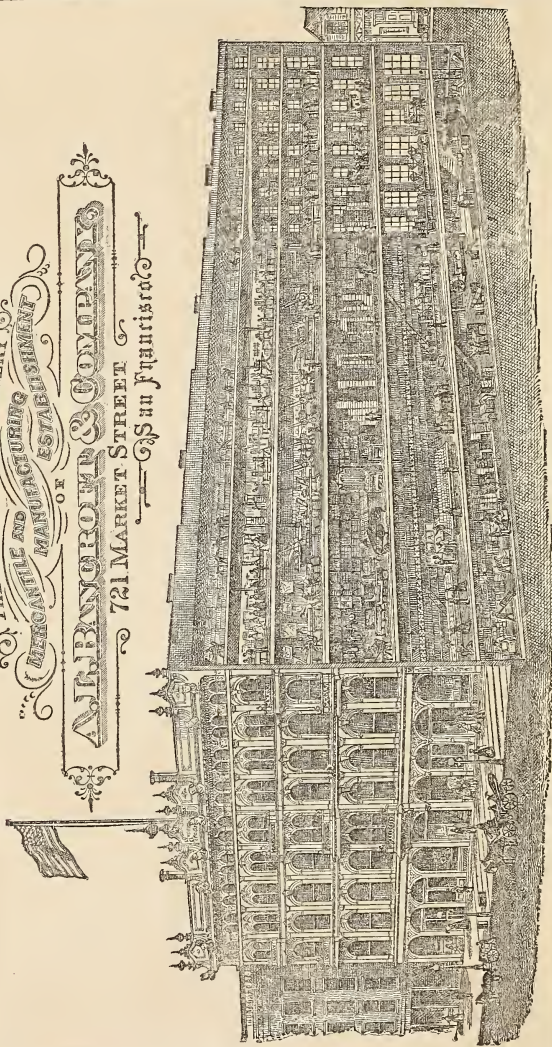 MERCANTILE AND
MANUFACTURING
ESTABLISHMENT
OF
A. L. BANCROFT & COMPANY
721 MARKET STREET
San Francisco